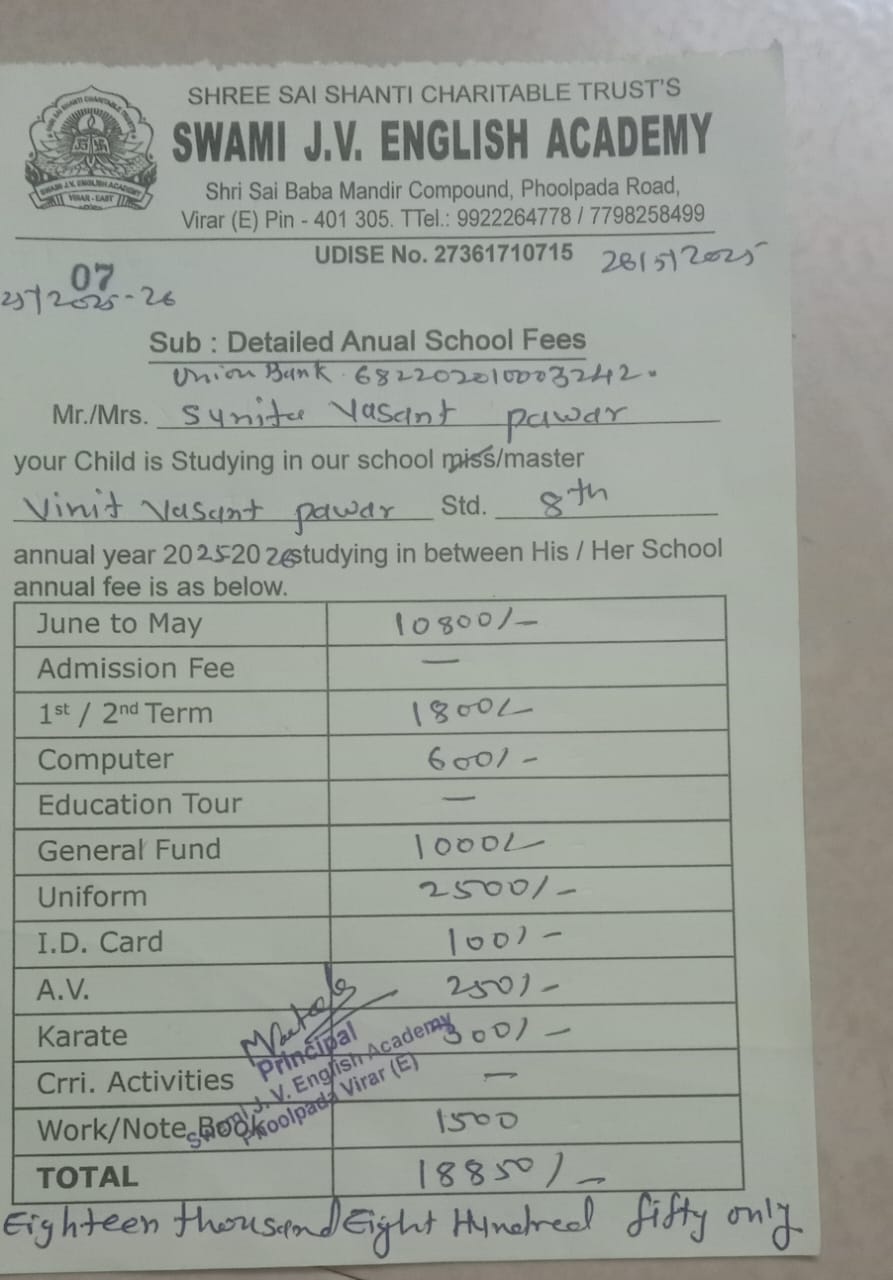 SHREE SAI SHANTI CHARITABLE TRUST'S
SWAMI J.V. ENGLISH ACADEMY
Shri Sai Baba Mandir Compound, Phoolpada Road,
Virar (E) Pin - 401 305. TTel.: 9922264778 / 7798258499
UDISE No. 27361710715 26/5/2025
07
25/2025-26
Sub : Detailed Anual School Fees
Union Bank 682202010003242.
Mr./Mrs. Synita Vasant pawar
your Child is Studying in our school miss/master
Vinit Vasant pawar Std. 8th
annual year 2025-2026 studying in between His / Her School
annual fee is as below.
June to May 10800/-
Admission Fee —
1st / 2nd Term 1800/-
Computer 600/-
Education Tour —
General Fund 1000/-
Uniform 2500/-
I.D. Card 100/-
A.V. 250/-
Karate 300/-
Crri. Activities —
Work/Note Book 1500
TOTAL 18850/-
Eighteen thousand Eight Hyndred fifty only
Principal
Swami J. V. English Academy
Phoolpada Virar (E)
SWAMI J.V. ENGLISH ACADEMY
VIRAR - EAST